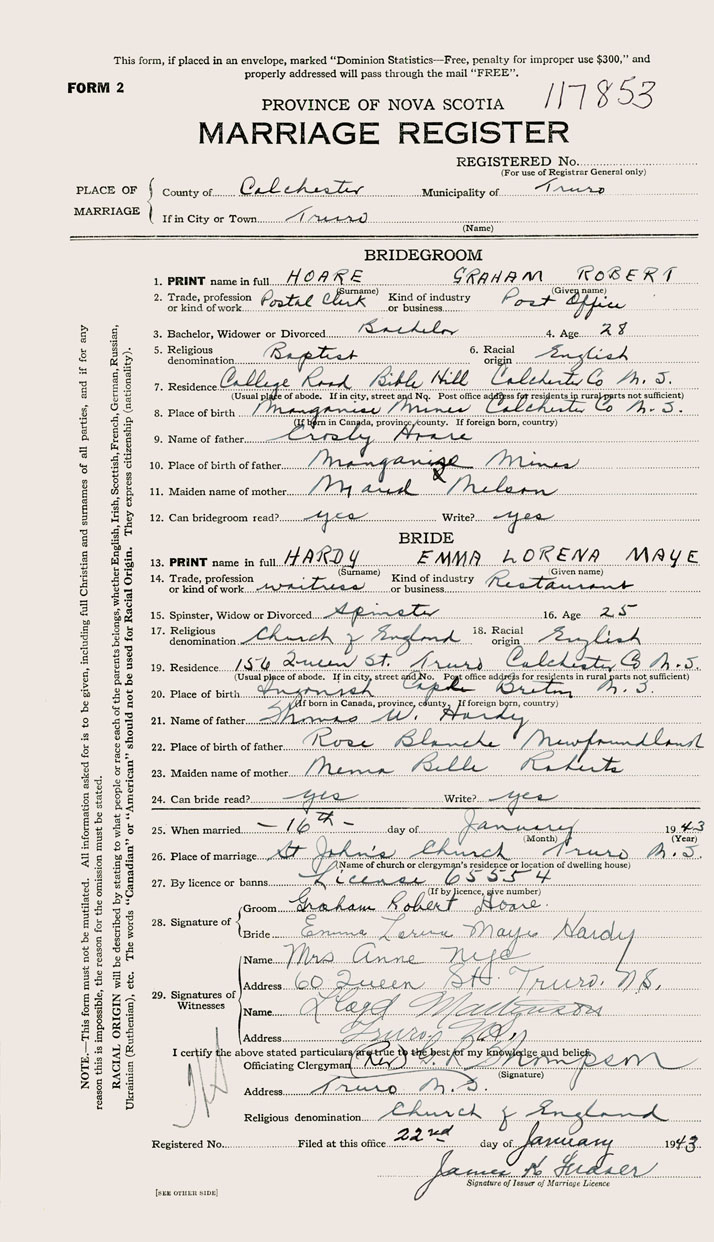 This form, if placed in an envelope, marked “Dominion Statistics—Free, penalty for improper use $300,” and
properly addressed will pass through the mail “FREE”.
FORM 2
117853
PROVINCE OF NOVA SCOTIA
MARRIAGE REGISTER
REGISTERED No.
(For use of Registrar General only)
PLACE OF MARRIAGE
County of Colchester Municipality of Truro
If in City or Town Truro
(Name)
BRIDEGROOM
1. PRINT name in full HOARE GRAHAM ROBERT
(Surname) (Given name)
2. Trade, profession or kind of work Postal Clerk Kind of industry or business Post Office
3. Bachelor, Widower or Divorced Bachelor 4. Age 28
5. Religious denomination Baptist 6. Racial origin English
7. Residence College Road Bible Hill Colchester Co N.S.
(Usual place of abode. If in city, street and No. Post office address for residents in rural parts not sufficient)
8. Place of birth Manganise Mines Colchester Co N.S.
(If born in Canada, province, county. If foreign born, country)
9. Name of father Crosby Hoare
10. Place of birth of father Manganise Mines
11. Maiden name of mother Maud Nelson
12. Can bridegroom read? yes Write? yes
BRIDE
13. PRINT name in full HARDY EMMA LORENA MAYE
(Surname) (Given name)
14. Trade, profession or kind of work waitress Kind of industry or business Restaurant
15. Spinster, Widow or Divorced Spinster 16. Age 25
17. Religious denomination Church of England 18. Racial origin English
19. Residence 156 Queen St. Truro Colchester Co N.S.
(Usual place of abode. If in city, street and No. Post office address for residents in rural parts not sufficient)
20. Place of birth Ingonish Cape Breton N.S.
(If born in Canada, province, county. If foreign born, country)
21. Name of father Thomas W. Hardy
22. Place of birth of father Rose Blanche Newfoundland
23. Maiden name of mother Belle Roberts
24. Can bride read? yes Write? yes
25. When married —16th— day of January 1943
(Month) (Year)
26. Place of marriage St John's Church Truro N.S.
(Name of church or clergyman's residence or location of dwelling house)
27. By licence or banns License 65554
(If by licence, give number)
28. Signature of
Groom Graham Robert Hoare.
Bride Emma Lorena Maye Hardy
29. Signatures of Witnesses
Name Mrs Anne Nye
Address 60 Queen St. Truro. N.S.
Name Lloyd
Address Truro, N.S.
I certify the above stated particulars are true to the best of my knowledge and belief.
Officiating Clergyman (Rev) Thompson
(Signature)
Address Truro N.S.
Religious denomination Church of England
Registered No. Filed at this office 22nd day of January 1943
James K Fraser
Signature of Issuer of Marriage Licence
[SEE OTHER SIDE]
NOTE.—This form must not be mutilated. All information asked for is to be given, including full Christian and surnames of all parties, and if for any
reason this is impossible, the reason for the omission must be stated.
RACIAL ORIGIN will be described by stating to what people or race each of the parents belongs, whether English, Irish, Scottish, French, German, Russian,
Ukrainian (Ruthenian), etc. The words “Canadian” or “American” should not be used for Racial Origin. They express citizenship (nationality).